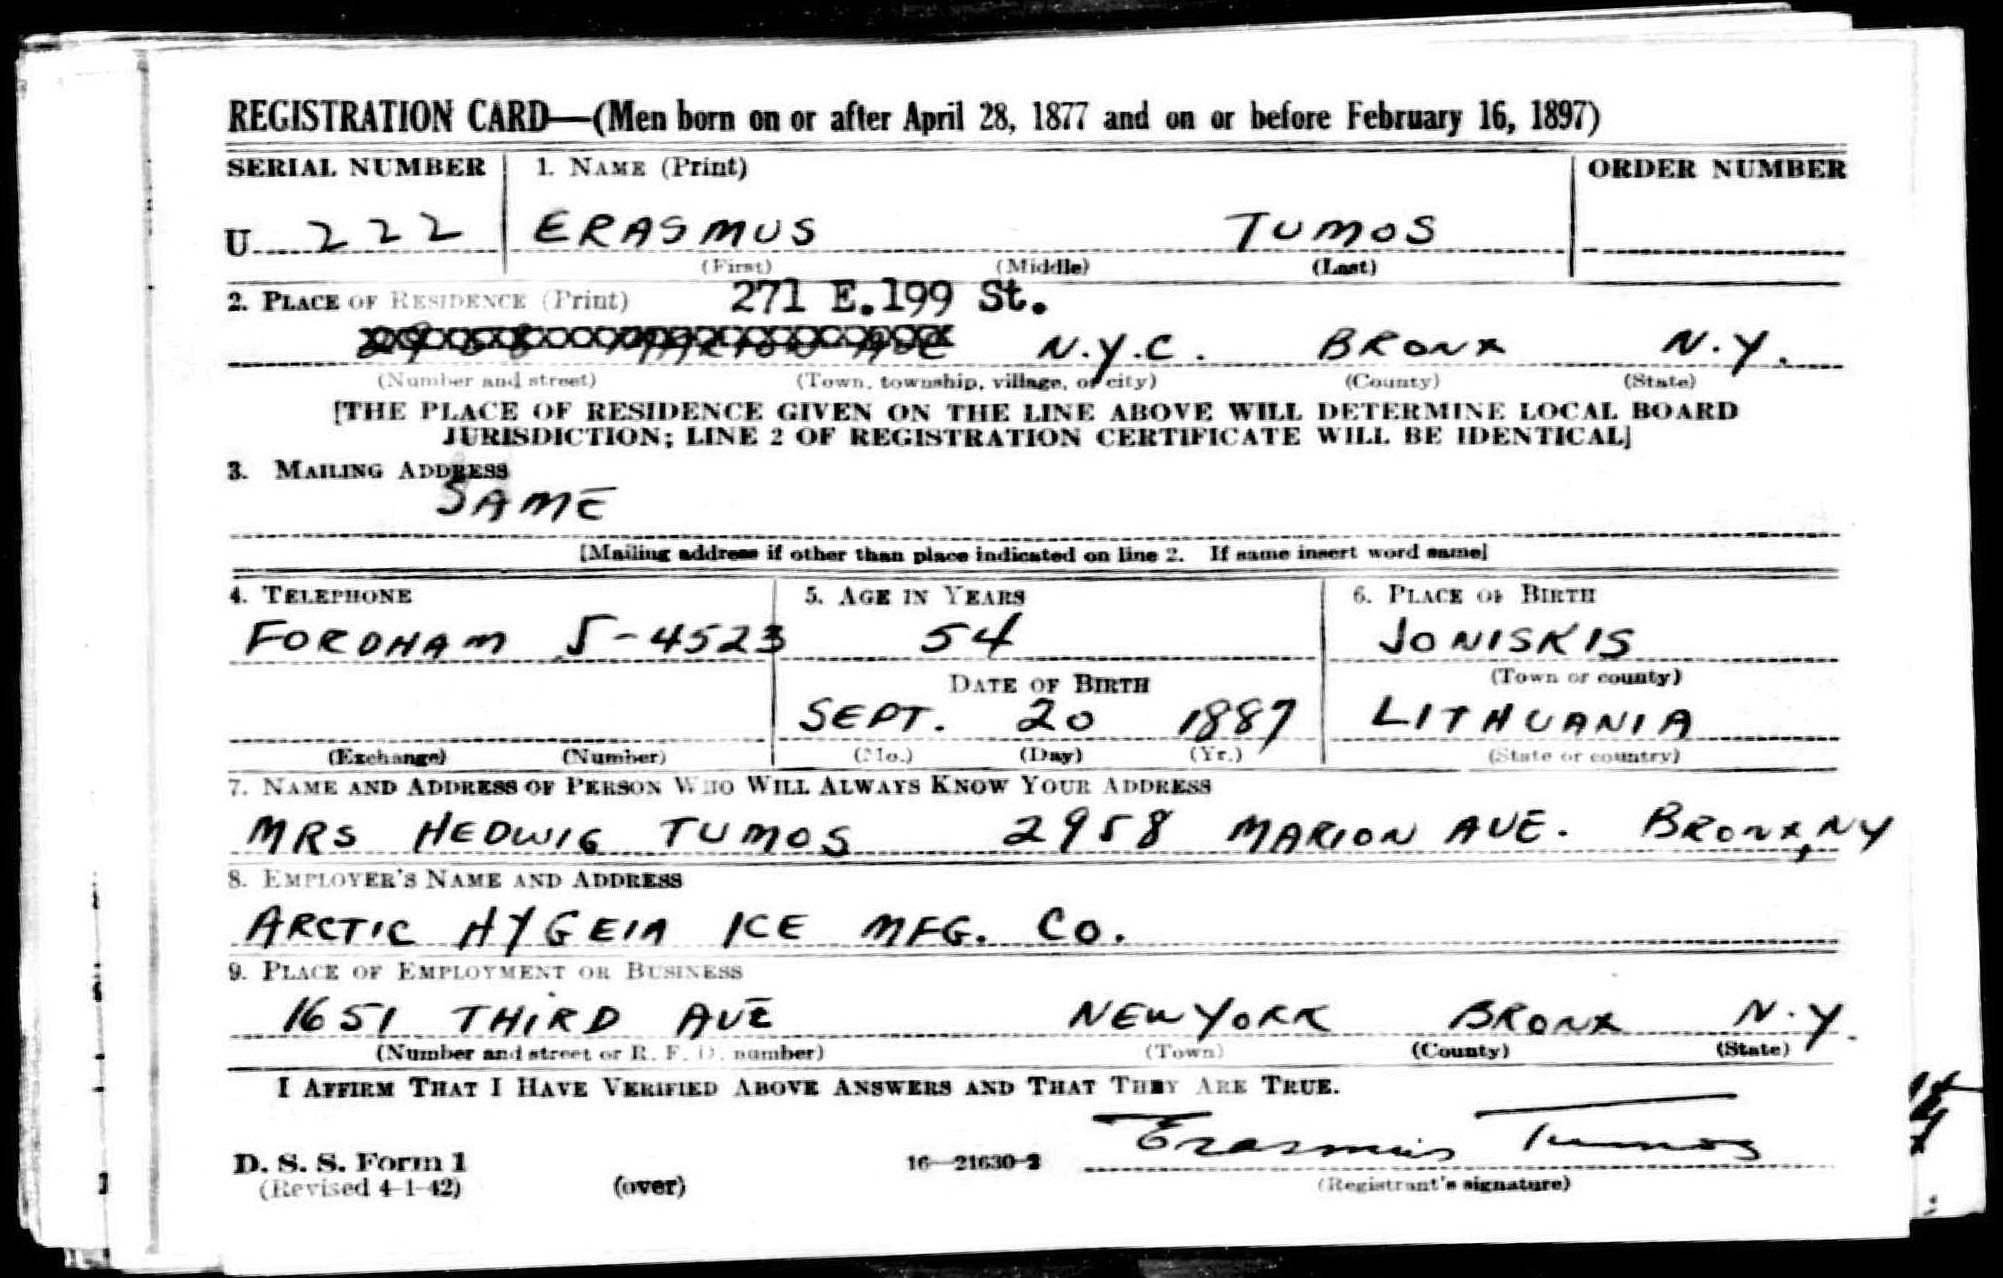 REGISTRATION CARD—(Men born on or after April 28, 1877 and on or before February 16, 1897)
SERIAL NUMBER 1. NAME (Print) ORDER NUMBER
U 222 ERASMUS TUMOS
(First) (Middle) (Last)
2. PLACE OF RESIDENCE (Print) 271 E.199 St.
N.Y.C. BRONX N.Y.
(Number and street) (Town, township, village, or city) (County) (State)
[THE PLACE OF RESIDENCE GIVEN ON THE LINE ABOVE WILL DETERMINE LOCAL BOARD
JURISDICTION; LINE 2 OF REGISTRATION CERTIFICATE WILL BE IDENTICAL]
3. MAILING ADDRESS
SAME
[Mailing address if other than place indicated on line 2. If same insert word same]
4. TELEPHONE 5. AGE IN YEARS 6. PLACE OF BIRTH
FORDHAM 5-4523 54 JONISKIS
DATE OF BIRTH (Town or county)
SEPT. 20 1887 LITHUANIA
(Exchange) (Number) (Mo.) (Day) (Yr.) (State or country)
7. NAME AND ADDRESS OF PERSON WHO WILL ALWAYS KNOW YOUR ADDRESS
MRS HEDWIG TUMOS 2958 MARION AVE. BRONX, NY
8. EMPLOYER'S NAME AND ADDRESS
ARCTIC HYGEIA ICE MFG. CO.
9. PLACE OF EMPLOYMENT OR BUSINESS
1651 THIRD AVE NEW YORK BRONX N.Y.
(Number and street or R. F. D. number) (Town) (County) (State)
I AFFIRM THAT I HAVE VERIFIED ABOVE ANSWERS AND THAT THEY ARE TRUE.
Erasmus Tumos
D. S. S. Form 1 16—21630-2
(Revised 4-1-42) (over) (Registrant's signature)